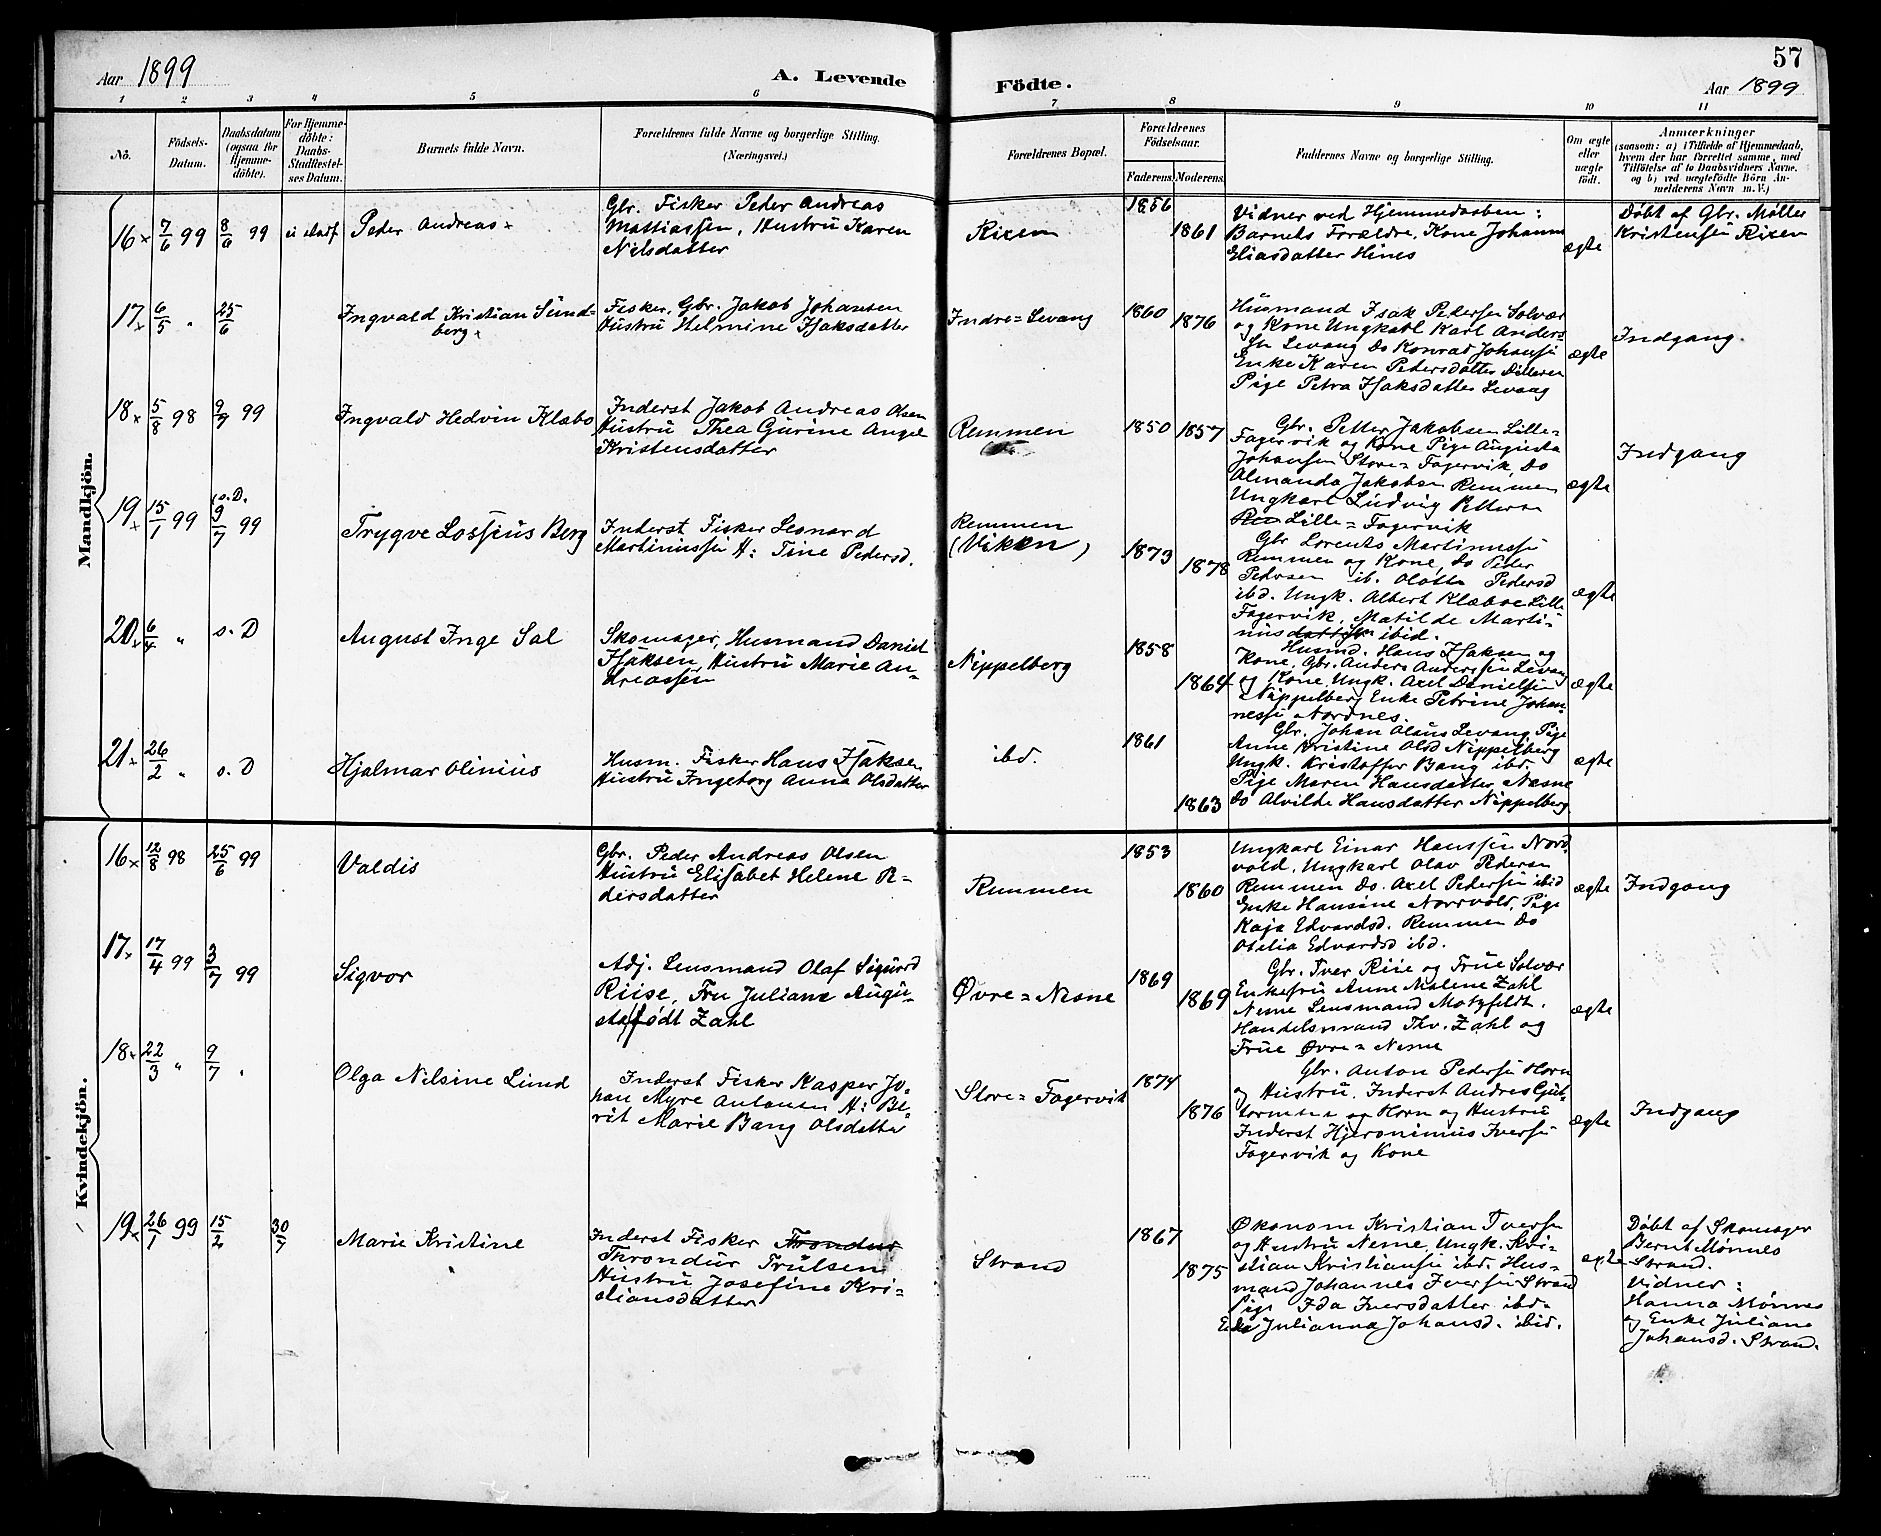 57
Aar 1899
A. Levende
Födte.
Aar 1899
1 2 3 4 5 6 7 8 9 10 11
No.
Födsels-
Datum.
Daabsdatum
(ogsaa for
Hjemme-
döbte).
For Hjemme-
döbte:
Daabs-
Stadfæstel-
ses Datum.
Barnets fulde Navn.
Forældrenes fulde Navne og borgerlige Stilling.
(Næringsvei.)
Forældrenes Bopæl.
Forældrenes
Födselsaar.
Faderens. Moderens.
Faddernes Navne og borgerlige Stilling.
Om ægte
eller
uægte
födt.
Anmærkninger
(saasom: a) i Tilfælde af Hjemmedaab,
hvem der har forrettet samme, med
Tilföielse af to Daabsvidners Navne,
og b) ved uægtefödte Börn An-
melderens Navn m. V.)
Mandkjön.
16 × 7/6 99 8/6 99 ei stadf
Peder Andreas
Gbr. Fisker Peder Andreas
Mattiassen, Hustru Karen
Nilsdatter
Rixen
1856
1861
Vidner ved Hjemmedaaben:
Barnets Forældre, Kone Johanna
Eliasdatter Hines
ægte
Döbt af Gbr. Møller
Kristensen Rixen
17 × 6/5 " 25/6
Ingvald Kristian Sund-
berg
Fisker, Gbr. Jakob Johansen
Hustru Helmine Isaksdatter
Indre = Levang
1860
1876
Husmand Isak Pedersen Solvær
og Kone Ungkarl Karl Anders-
sen Levang Do Konrad Johansen
Enke Karen Pedersdatter
Pige Petra Isaksdatter Levang
ægte
Indgang.
18 × 5/8 98 9/7 99
Ingvald Hedvin Klæbo
Inderst Jakob Andreas Olsen
Hustru Thea Gurine Angel
Kristensdatter
Remmen
1850 1857
Gbr. Petter Jakobsen Lille-
Fagervik og Kone Pige Augusta
Johansen Store = Fagervik, Do
Almanda Jakobsen Remmen
Ungkarl Ludvig Pettersen
Lille = Fagervik
ægte
Indgang
19 × 15/1 99 s. D. 9/7 99
Trygve Lossius Berg
Inderst Fisker Leonard
Martinussen H: Tine Pedersd.
Remmen
(Viken)
1873
1878
Gbr Lorents Martinussen
Remmen og Kone, Do Peder
Pedersen ib. Olotte Pedersd
ibd. Ungk. Albert Klæboe Lille
Fagervik, Matilde Marti-
nusdatter ibid.
ægte
20 × 6/4 " s. D
August Inge Sal
Skomager, Husmand Daniel
Isaksen, Hustru Marie An-
dreassen
Nippelberg
1858
1864
Husmd. Hans Isaksen og
Kone, Gbr. Anders Anderssen Levang
og Kone, Ungk. Axel Danielsen
Nippelberg Enke Petrine Johan-
nessen Nordnes.
ægte
21 × 26/2 " s. D
Hjalmar Olinius
Husm. Fisker Hans Isaksen
Hustru Ingeborg Anna Olsdatter
ibd.
1861
1863
Gbr. Johan Olaus Levang, Pige
Anne Kristine Olsd Nippelberg
Ungk. Kristoffer Bang ibd.
Pige Maren Hansdatter Næsne
Do Alvilde Hansdatter Nippelberg
ægte
Kvindekjön.
16 × 12/8 98 25/6 99
Valdis
Gbr. Peder Andreas Olsen
Hustru Elisabet Helene P-
dersdatter
Remmen
1853
1860
Ungkarl Einar Hanssen Nord
vold, Ungkarl Olav Pedersen
Remmen Do. Axel Pedersen ibid
Enke Hansine Norrvold, Pige
Kaja Edvardsd. Remmen Do
Otelia Edvardsd ibd.
ægte
Indgang
17 × 17/4 99 3/7 99
Sigvor
Adj. Lensmand Olaf Sigurd
Riise, Fru Juliane Augu-
sta født Zahl
Øvre = Nesne
1869
1869
Gbr. Iver Riie og Frue Solvær
Enkefru Anne Malene Zahl
Nesne Lensmand Motzfeldt.
Handelsmand Thv. Zahl og
Frue Øvre = Nesne
ægte
18 × 22/3 " 9/7 "
Olga Nelsine Lund
Inderst Fisker Kasper Jo-
han Myre Antonsen H: Be-
rit Marie Bang Olsdatter
Store = Fagervik
1874
1876
Gbr. Anton Pedersen Horn
og Hustru. Inderst Andreas Gut-
tormsen og Horn og Hustru
Inderst Hjeronimus Iversen
Fagervik og Kone
ægte
Indgang
19 × 26/1 99 15/2 30/7
Marie Kristine
Inderst Fisker Trondur
Throndur Trulsen
Hustru Josefine Kri-
stiansdatter
Strand
1867
1875
Økonom Kristian Iversen
og Hustru Nesne, Ungk. Kri-
stian Kristiansen ibd. Hus-
mand Johannes Iversen Strand
Pige Ida Iversdatter ibd.
Enke Julianna Johansd. ibid.
ægte
Döbt af Skomager
Bernt Mønnes
Strand.
Vidner:
Hanna Mønnes
og Enke Juliane
Johansd. Strand.